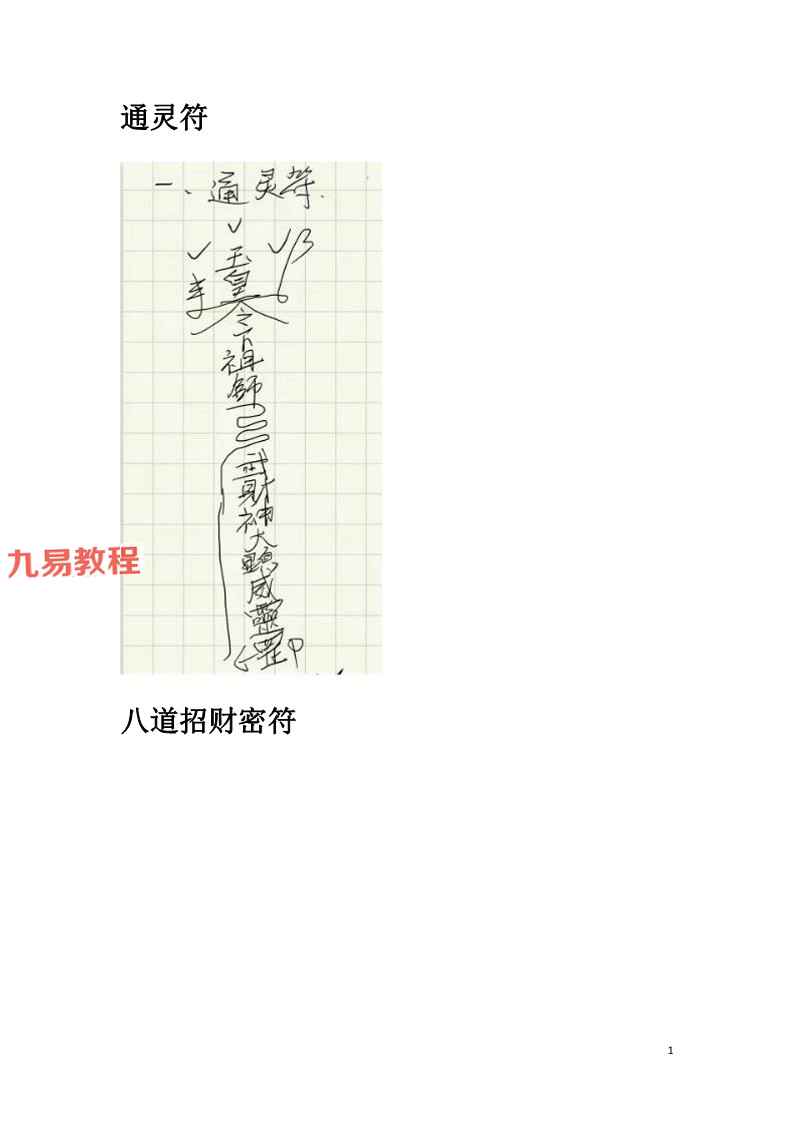 通灵符
一、通灵符.
玉
皇
令
下
祖
師
武
財
神
大
顯
威
靈
罡
印
九易教程
八道招财密符
1